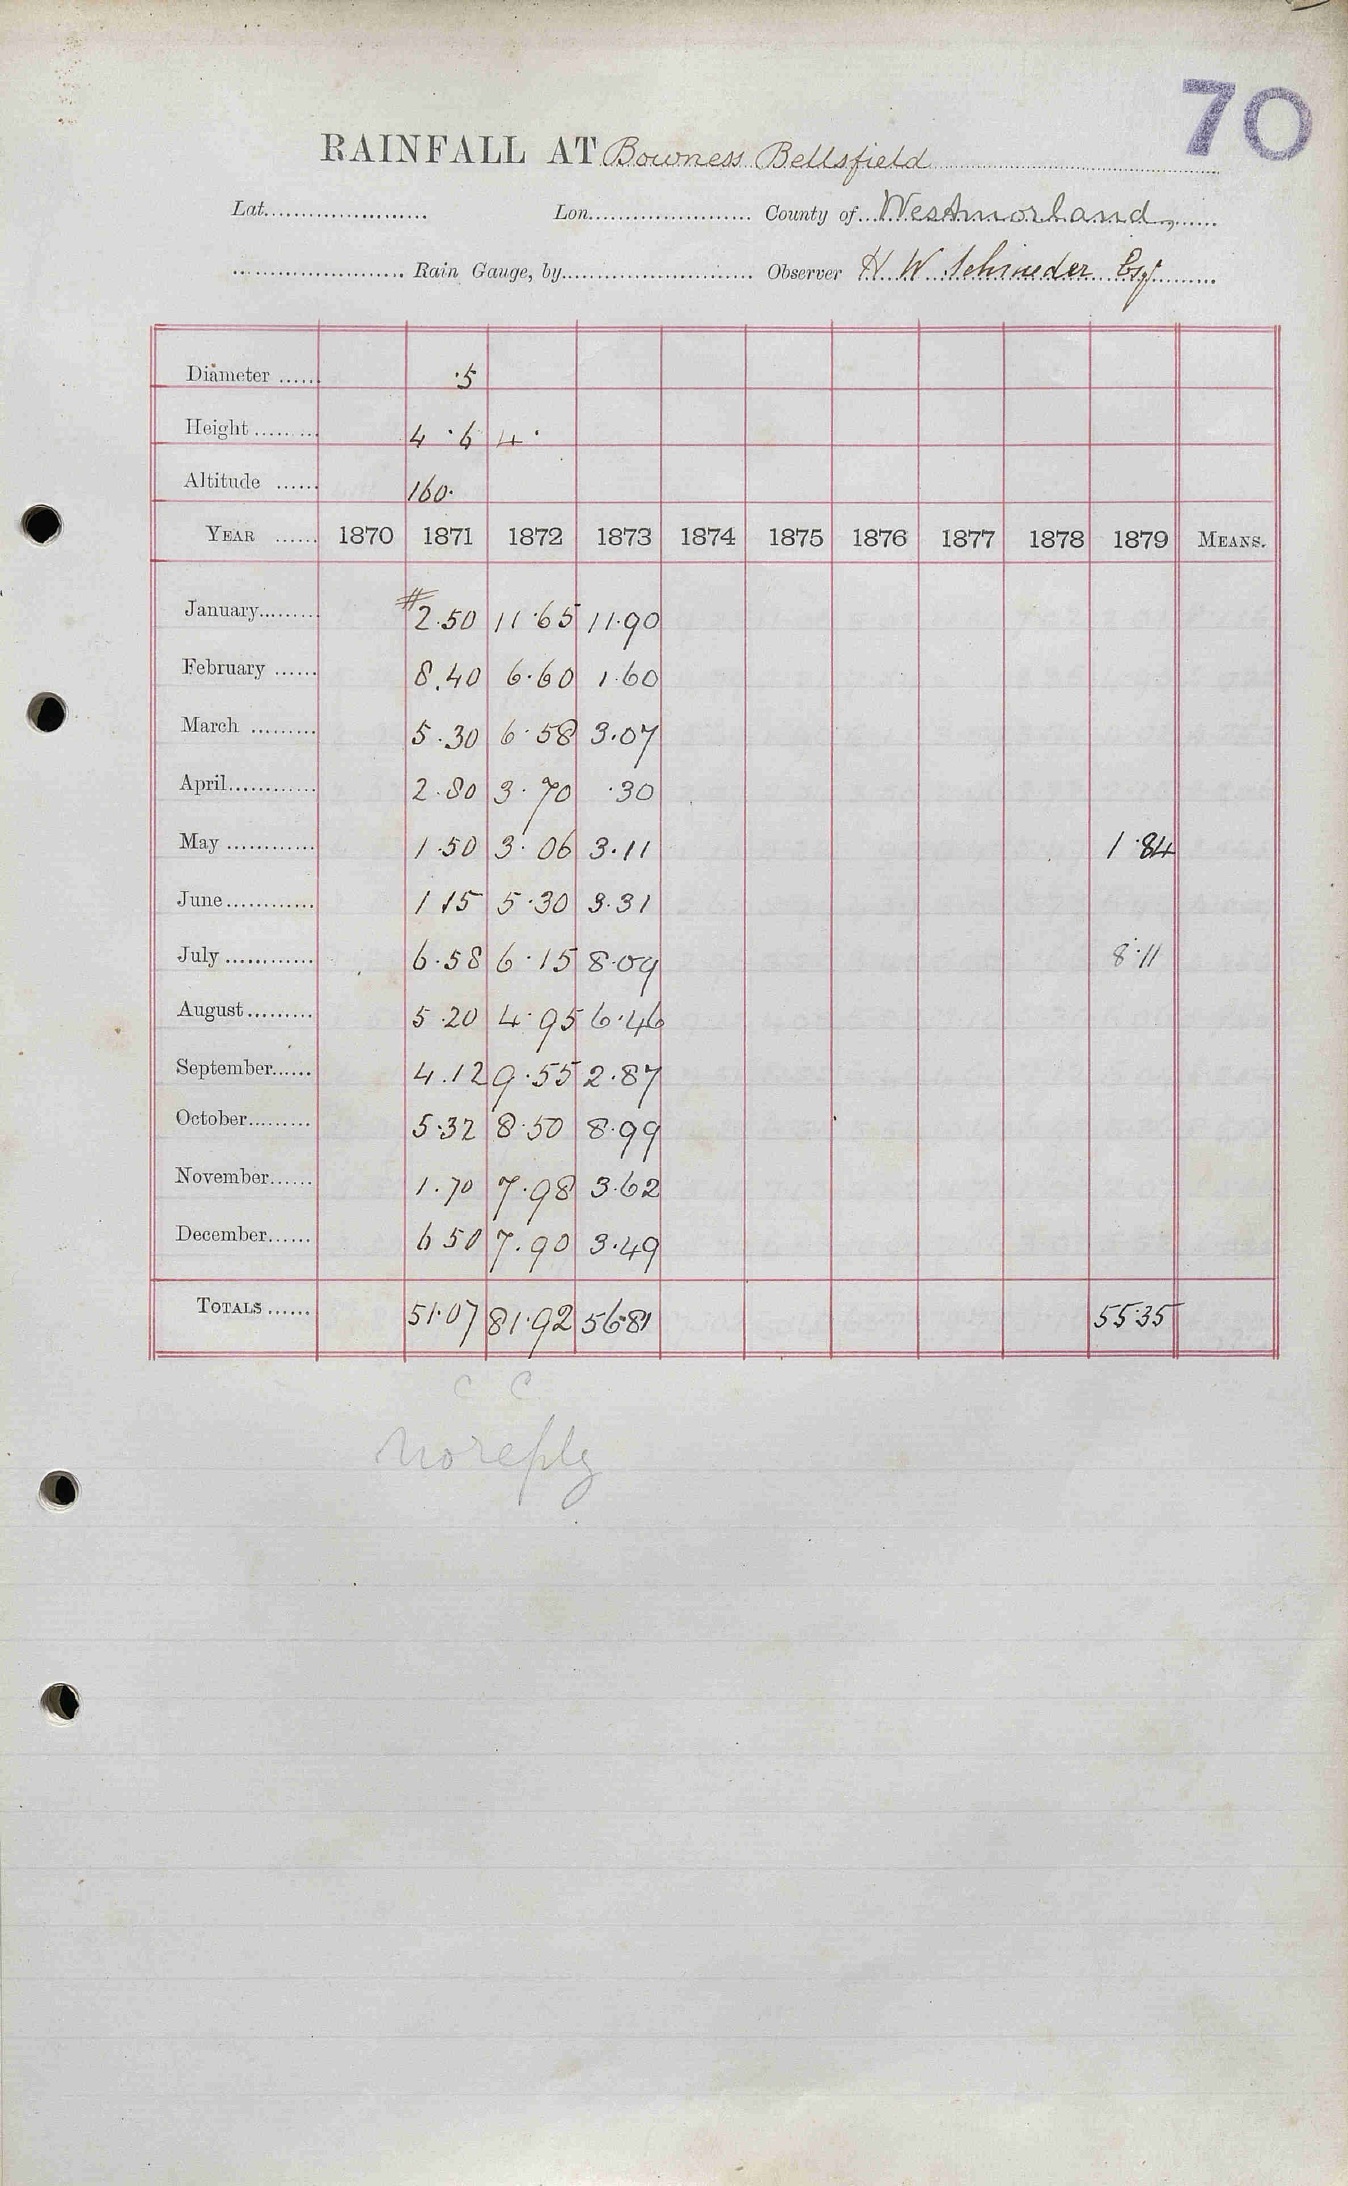 70
RAINFALL AT Bowness Bellsfield
Lat. Lon. County of Westmorland,
Rain Gauge, by Observer H W Schnieder Esq
Diameter ...... ·5
Height ......... 4 ·6 4 ·
Altitude ...... 160·
YEAR ...... 1870 1871 1872 1873 1874 1875 1876 1877 1878 1879 MEANS.
January......... #2.50 11·65 11·90
February ...... 8.40 6·60 1·60
March ......... 5·30 6·58 3·07
April............ 2·80 3·70 ·30
May ............ 1·50 3·06 3·11 1·84
June............ 1 15 5·30 3·31
July ............ 6·58 6·15 8·09 8·11
August......... 5·20 4·95 6·46
September...... 4.12 9·55 2·87
October......... 5·32 8·50 8·99
November...... 1·70 7·98 3·62
December...... 6 50 7·90 3·49
TOTALS ...... 51·07 81·92 56·81 55·35
C C
No reply